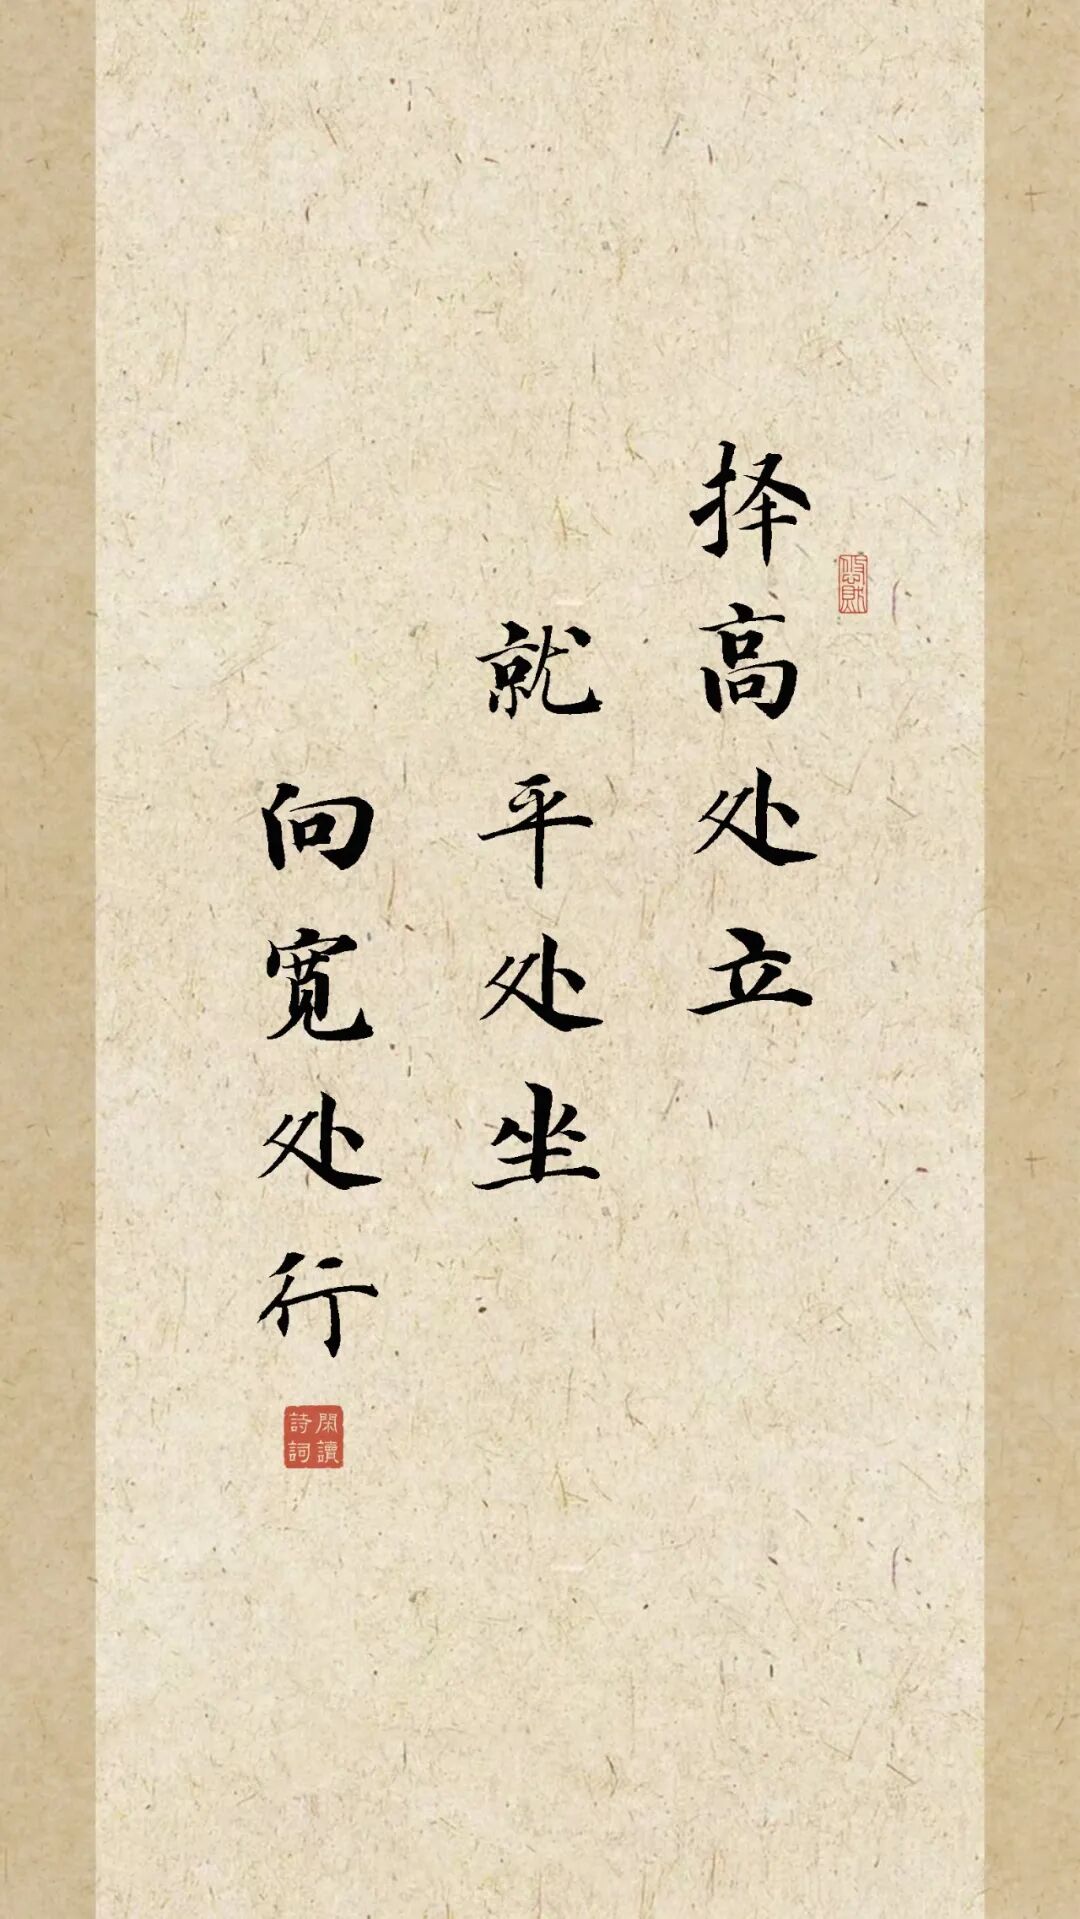 择高处立
就平处坐
向宽处行
閑讀
詩詞